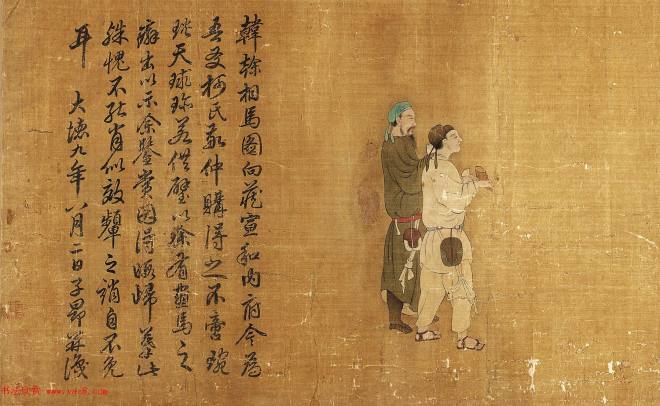 韓榦相馬圖向藏宣和内府今為
吾友柯氏敬仲購得之不啻琬
琰天球珍若供璧以余有畫馬之
癖出以示余鑒賞因得暇歸摹此
殊愧不能肖似效顰之誚自不免
耳 大德九年八月二日子昂并識
书法欣赏 www.yac8.com